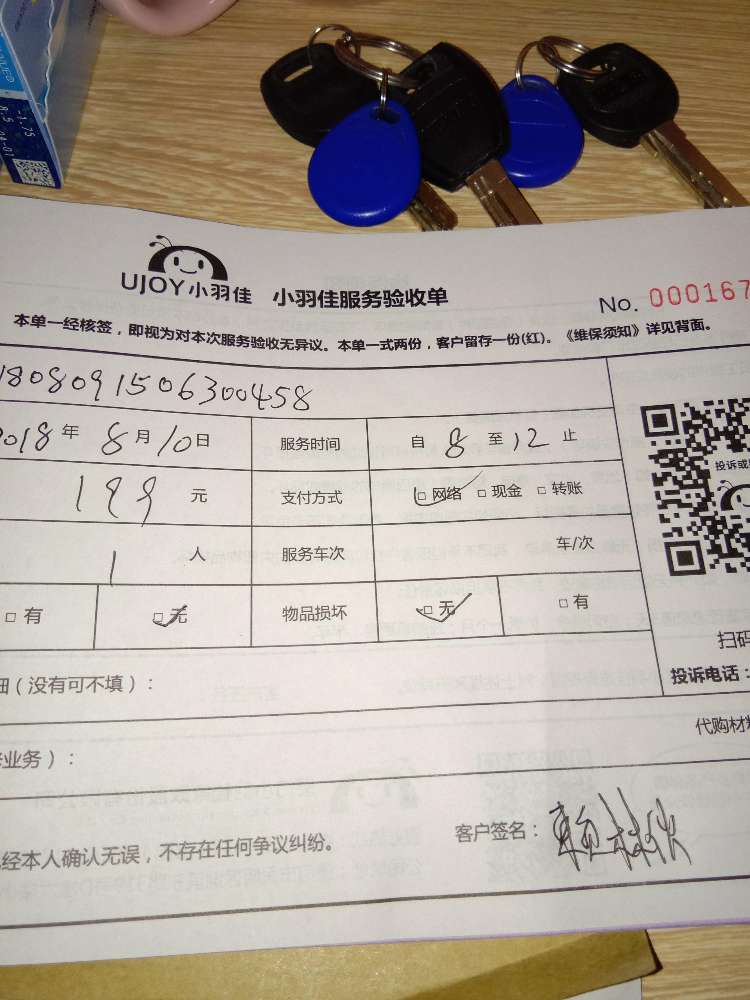 1.75
8.5
UJOY小羽佳 小羽佳服务验收单 No. 000167
本单一经核签,即视为对本次服务验收无异议。本单一式两份,客户留存一份(红)。《维保须知》详见背面。
1808091506300458
2018年 8月10日 服务时间 自 8 至 12 止
199 元 支付方式 □网络 □现金 □转账
1 人 服务车次 车/次
□有 □无 物品损坏 □无 □有
投诉或
扫码
细(没有可不填):
投诉电话:
代购材料
业务):
经本人确认无误,不存在任何争议纠纷。 客户签名: